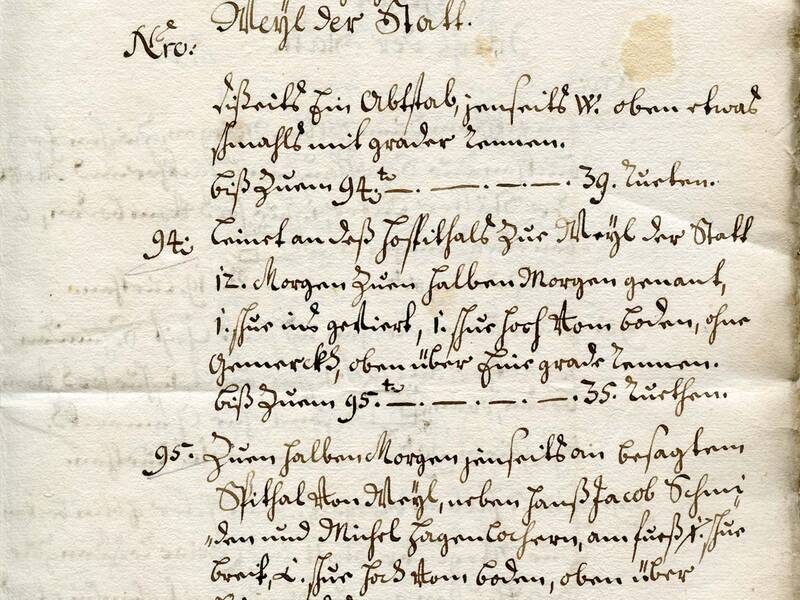 Weyl der Statt.
Nro:
disseits Ein Abtstab, jenseits W. oben etwas
schmahls mit grader Rennen.
biß Zuem 94.to — . — . — . — . 39. Rueten.
94. Leinet an deß Hospithals Zue Weyl der Statt
12. Morgen Zuen halben Morgen genant,
1. shue ins geviert, 1. shue hoch vom boden, ohne
Gemerckh, oben über Eine grade Rennen.
biß Zuem 95.to — . — . — . — . 35. Ruethen.
95. Zuen halben Morgen jenseits an besagtem
Spithal von Weyl, neben hanß Jacob Schmi
„den und Michel hagenlochern, am fueß 1. shue
breit, 2. shue hoch vom boden, oben über